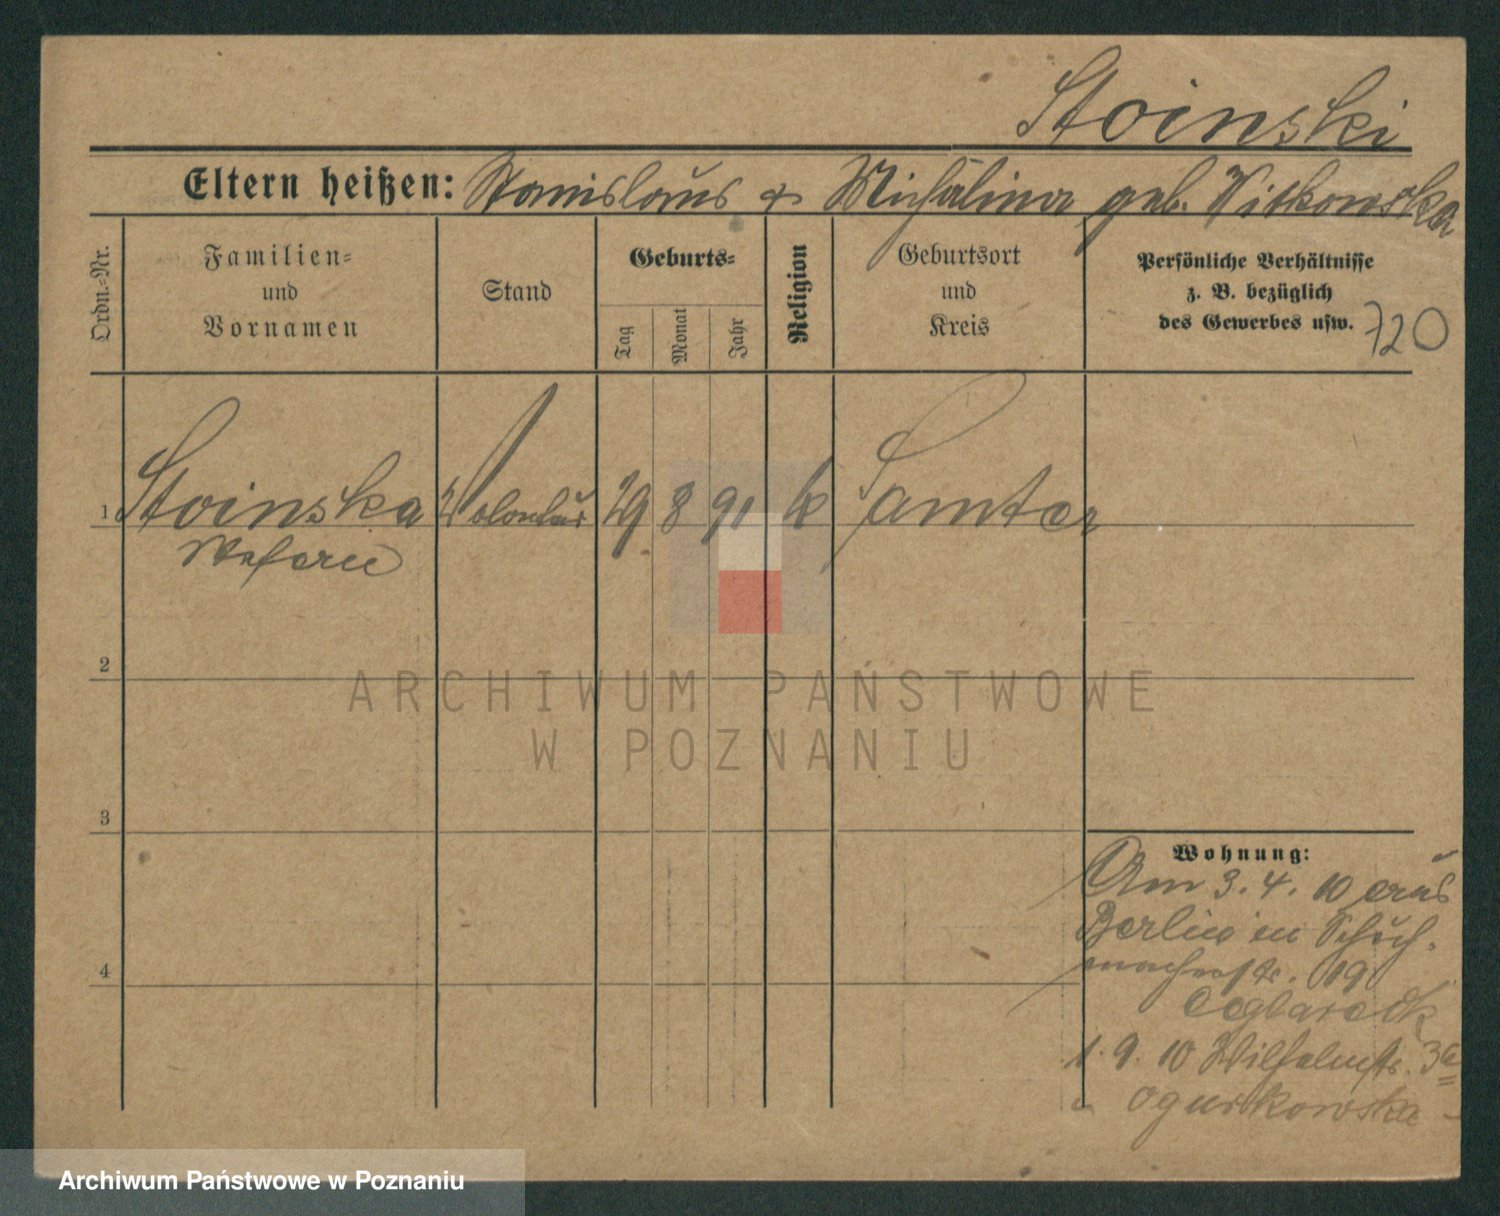 Stoinski
Eltern heißen: Stanislaus & Michalina geb. Witkowska
Ordn.-Nr.
Familien-
und
Vornamen
Stand
Geburts-
Tag
Monat
Jahr
Religion
Geburtsort
und
Kreis
Persönliche Verhältnisse
z. B. bezüglich
des Gewerbes usw.
720
1 Stoinska Volontär 29 8 91 k Samter
2
3
4
Wohnung:
Am 3. 4. 10 aus
Berlin in Schuh-
macherstr. 19
1. 9. 10 Wilhelmstr.
Ogurkowska
ARCHIWUM PAŃSTWOWE
W POZNANIU
Archiwum Państwowe w Poznaniu